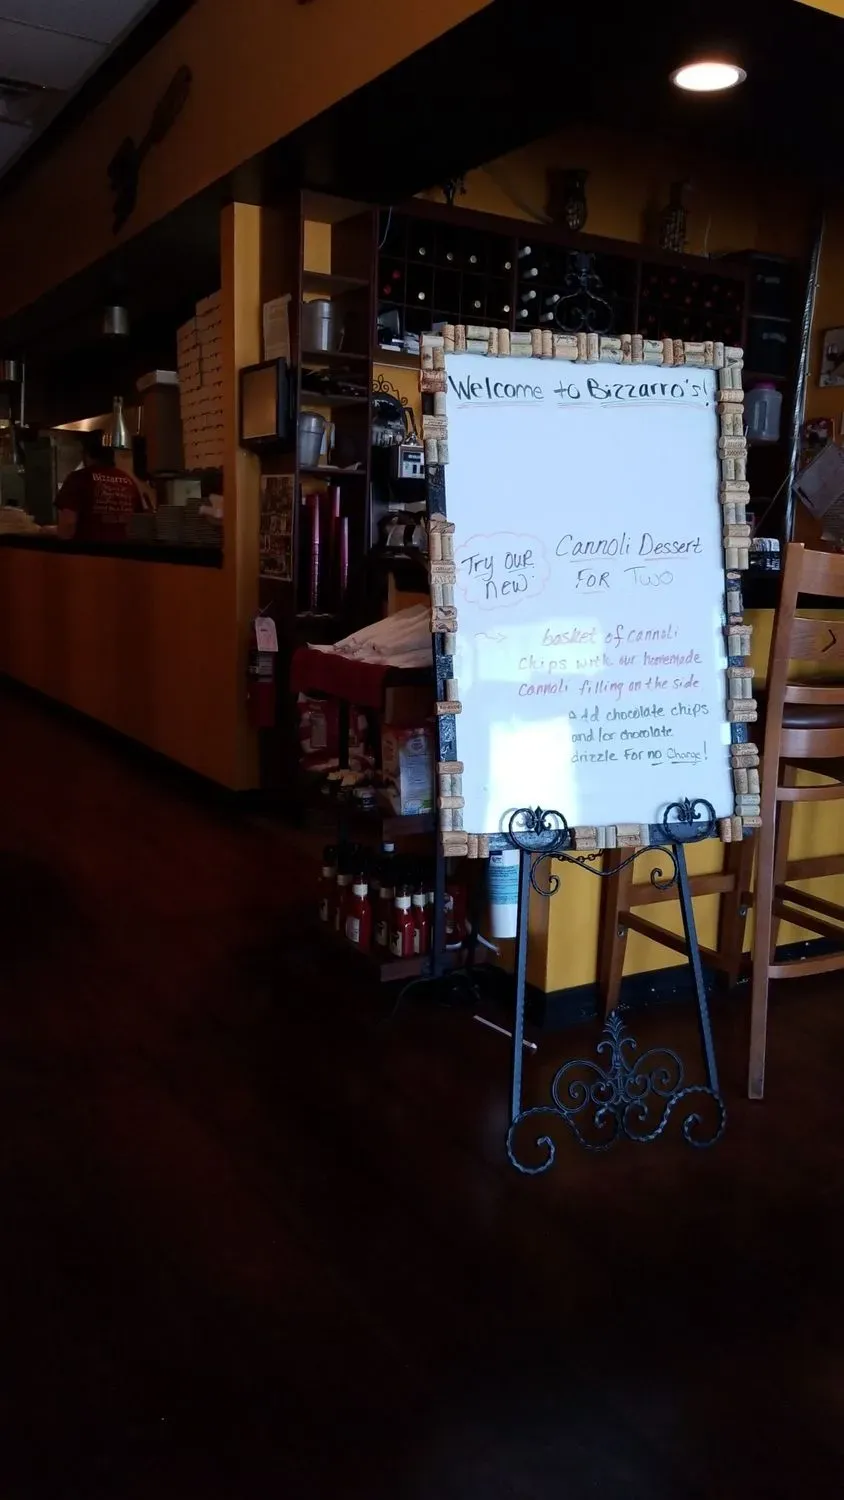 Welcome to Bizzarro's!
Try our
new
Cannoli Dessert
For Two
basket of cannoli
chips with our homemade
cannoli filling on the side
Add chocolate chips
and/or chocolate
drizzle For no Charge!
Bizzarro's